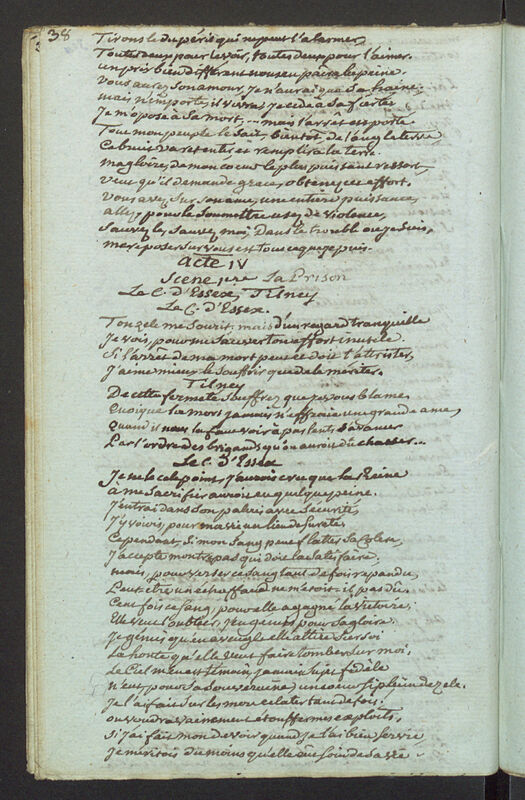 38
Tirons le du péril qui ne peut l'alarmer,
Toutes deux pour le voir, toutes deux pour l'aimer.
un prix bien différent nous en paira la peine.
Vous aurez son amour, je n'aurai que sa haine:
mais n'importe, il vivra, je cède à sa fierté
Je m'opose à sa mort,... mais l'arrêt est porté
Tout mon peuple le sait, bientôt de l'angleterre
Ce bruit va retentir et remplira la terre.
ma gloire, de mon cœur le plus puissant ressort,
veut qu'il demande grace, obtenez cet effort.
vous avez sur son ame, une entière puissance,
allez, pour le soumettre usez de violence,
Sauvez le, Sauvez moi, Dans le trouble où je suis,
me reposer sur vous est tout ce que je puis.
Acte IV
Scene 1ere La Prison
Le C. d'Essex, Tilney
Le C. d'Essex.
Ton zele me sourit, mais d'un regard tranquille
Je vois, pour me sauver ton effort inutile.
Si l'arrêt de ma mort peut et doit t'attrister,
J'aime mieux le souffrir que de la mériter.
Tilney
De cette fermeté souffrez que je vous blame
Quoique la mort jamais n'effraie une grande ame,
Quand il nous la faut voir à pas lents s'avancer
Par l'ordre des brigands qu'on auroit dû chasser...
Le C. D'Essex
Je ne le cele point, j'aurois cru que la Reine
à me sacrifier auroit eu quelque peine.
J'entrai dans son palais avec sécurité,
J'y voiois, pour ma vie un lieu de sureté.
Cependant, si mon sang peut flatter sa colere,
J'accepte mon trépas qui doit la satisfaire,
mais, pour verser ce sang tant de fois répandu,
Peut être un échaffaud ne m'étoit-il pas dû.
Cent fois ce sang, pour elle a gagné la victoire;
Elle veut l'oublier, j'en gémis pour sa gloire.
Je gémis qu'en aveugle elle attire sur soi
La honte qu'elle veut faire tomber sur moi.
Le Ciel m'en est témoin, jamais sujet fidèle
n'eut, pour sa souveraine, un cœur si plein de zele.
Je l'ai fait sur les mers éclater tant de fois,
on voudra vainement étouffer mes exploits.
Si j'ai fait mon devoir quand je l'ai bien servie
Je méritois du moins qu'elle eut soin de sa vie